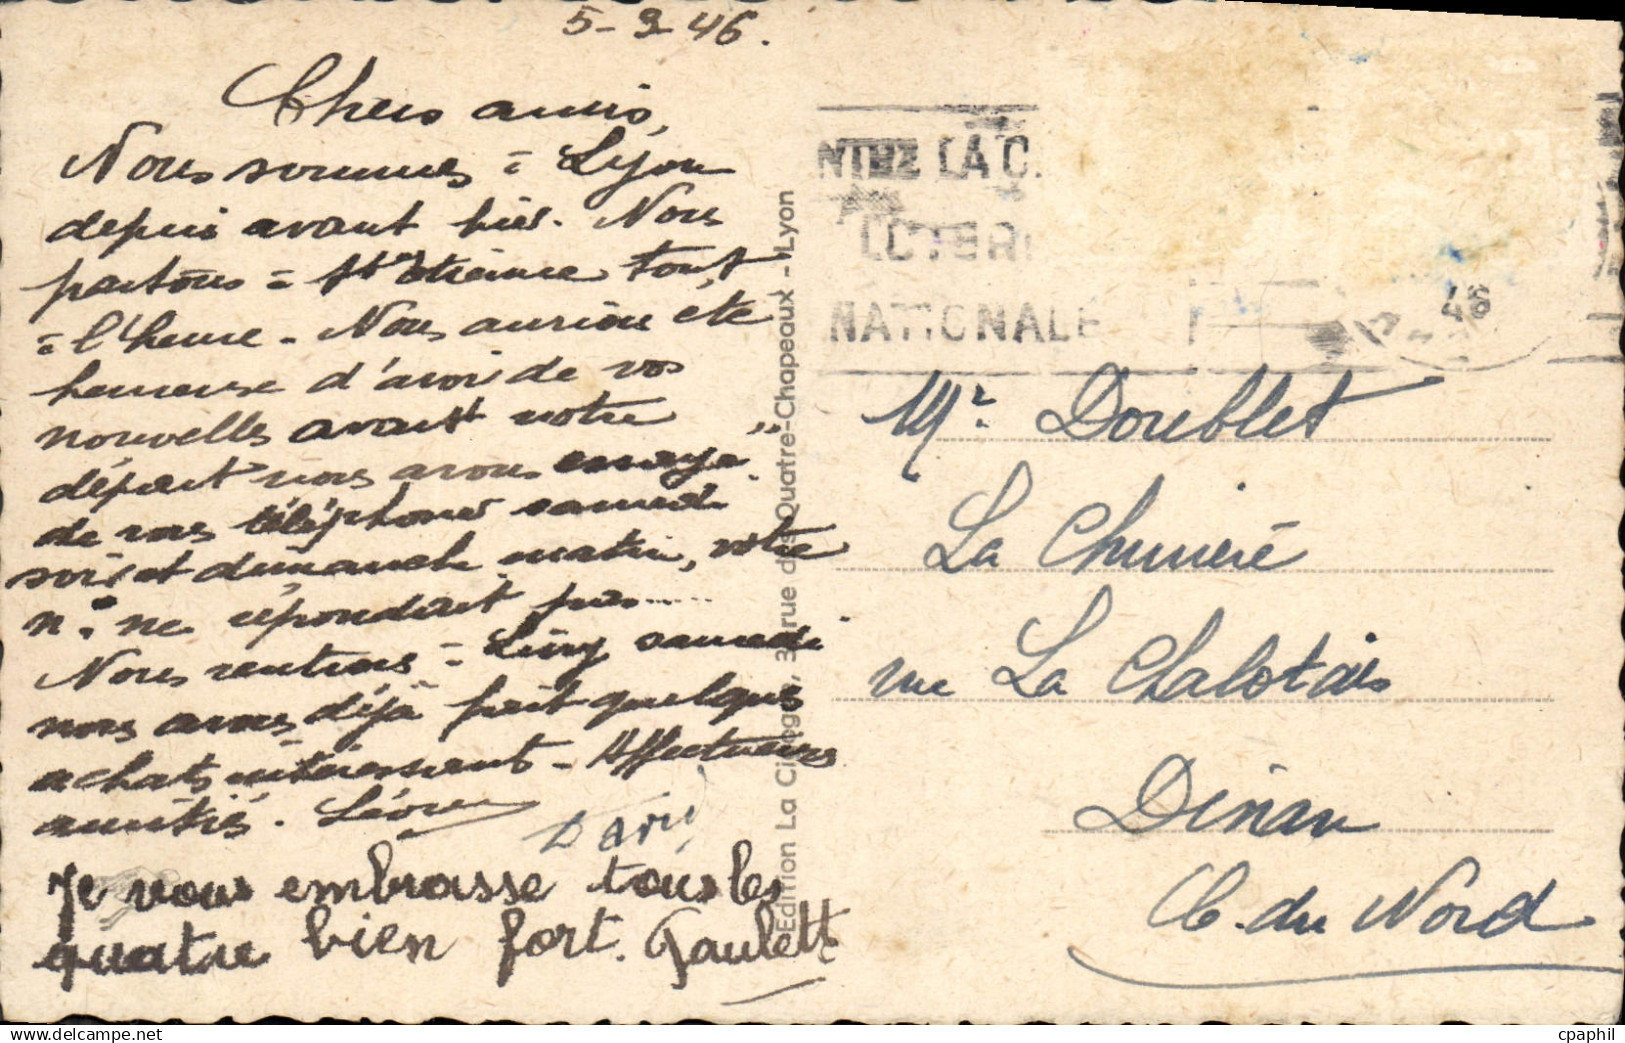 5-9-46.
Chers amis,
Nous sommes à Lyon
depuis avant hier. Nous
partons à St Etienne tout
à l'heure. Nous aurions été
heureuse d'avoir de vos
nouvelles avant notre
départ nous avons essayé
de vous téléphoner samedi
soir et dimanche matin, votre
n° ne répondait pas.....
Nous rentrons à Livry samedi
nous avons déjà fait quelques
achats intéressant - Affectueuses
amitiés. Léone
Je vous embrasse tous les
quatre bien fort. Paulette
Edition La Cigogne, rue des Quatre-Chapeaux - Lyon
NTRE LA
LOTERI
NATIONALE
46
Mr. Doublet
La
rue La Chalotais
Dinan
C. du Nord
cpaphil
https://www.delcampe.net